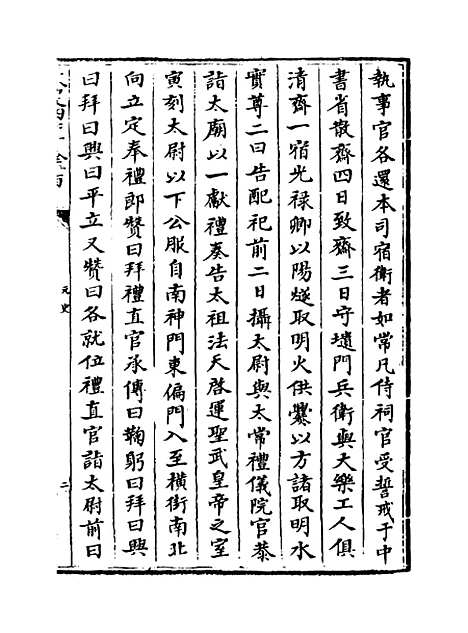 執事官各還本司宿衛者如常凡侍祠官受誓戒于中
書省散齋四日致齋三日守壝門兵衛與大樂工人俱
清齋一宿光祿卿以陽燧取明火供爨以方諸取明水
實尊二曰告配祀前二日攝太尉與太常禮儀院官恭
詣太廟以一獻禮奏告太祖法天啓運聖武皇帝之室
寅刻太尉以下公服自南神門東偏門入至橫街南北
向立定奉禮郎贊曰拜禮直官承傳曰鞠躬曰拜曰興
曰拜曰興曰平立又贊曰各就位禮直官詣太尉前曰
元史
二